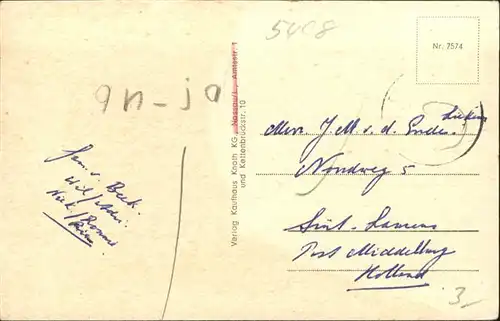 5408
Nr. 7574
an-jo
Verlag Kaufhaus Knoth KG., Nassau/L., Amtsstr. 1
und Kettenbrückstr. 10
Fam. v. Beek.
Wil/Adri.
Nick/
Mevr. J. M. v. d. Ende.
Noordweg 5
Sint. Laurens
Post Middelburg
Holland
3.